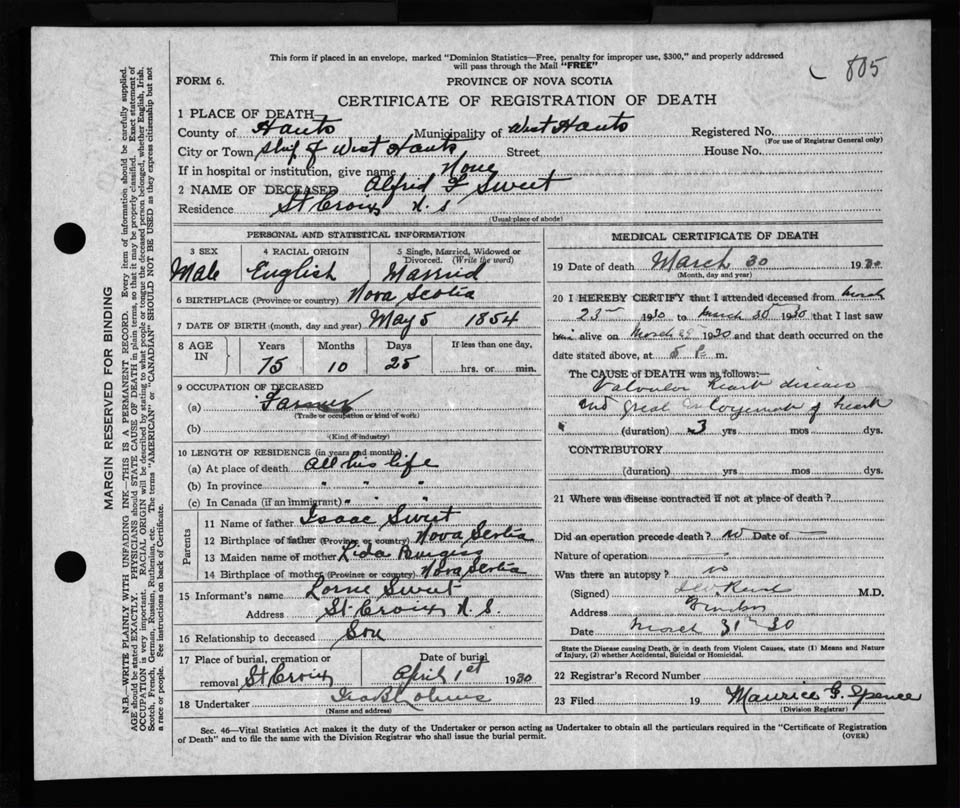 805
This form if placed in an envelope, marked "Dominion Statistics—Free, penalty for improper use, $300," and properly addressed
will pass through the Mail "FREE"
FORM 6.
PROVINCE OF NOVA SCOTIA
CERTIFICATE OF REGISTRATION OF DEATH
1 PLACE OF DEATH—
County of Hants Municipality of West Hants Registered No.
(For use of Registrar General only)
City or Town of West Hants Street House No.
If in hospital or institution, give name None
2 NAME OF DECEASED Alfred F Sweet
Residence St Croix N. S
(Usual place of abode)
PERSONAL AND STATISTICAL INFORMATION
3 SEX 4 RACIAL ORIGIN 5 Single, Married, Widowed or
Divorced. (Write the word)
Male English Married
6 BIRTHPLACE (Province or country) Nova Scotia
7 DATE OF BIRTH (month, day and year) May 5 1854
8 AGE IN Years Months Days If less than one day,
75 10 25 hrs. or min.
9 OCCUPATION OF DECEASED
(a) Farmer
(Trade or occupation or kind of work)
(b)
(Kind of industry)
10 LENGTH OF RESIDENCE (in years and months)
(a) At place of death All his life
(b) In province " " "
(c) In Canada (if an immigrant) " " "
Parents
11 Name of father Isaac Sweet
12 Birthplace of father (Province or country) Nova Scotia
13 Maiden name of mother Lida Burgess
14 Birthplace of mother (Province or country) Nova Scotia
15 Informant's name Lorne Sweet
Address St Croix N. S.
16 Relationship to deceased Son
17 Place of burial, cremation or Date of burial
removal St Croix April 1st 1930
18 Undertaker
(Name and address)
MEDICAL CERTIFICATE OF DEATH
19 Date of death March 30 1930
(Month, day and year)
20 I HEREBY CERTIFY that I attended deceased from March
23 1930 to March 30 1930 that I last saw
him alive on March 29 1930 and that death occurred on the
date stated above, at 5 P. m.
The CAUSE of DEATH was as follows:—
Valvular heart disease
and great enlargement of heart
(duration) 3 yrs mos dys.
CONTRIBUTORY
(duration) yrs mos dys.
21 Where was disease contracted if not at place of death?
Did an operation precede death? no Date of —
Nature of operation —
Was there an autopsy? no
(Signed) M.D.
Address Windsor
Date March 31 30
State the Disease causing Death, or in death from Violent Causes, state (1) Means and Nature
of Injury, (2) whether Accidental, Suicidal or Homicidal.
22 Registrar's Record Number
23 Filed 19 Maurice G. Spence
(Division Registrar)
Sec. 46—Vital Statistics Act makes it the duty of the Undertaker or person acting as Undertaker to obtain all the particulars required in the "Certificate of Registration
of Death" and to file the same with the Division Registrar who shall issue the burial permit.
(OVER)
MARGIN RESERVED FOR BINDING
N.B.—WRITE PLAINLY WITH UNFADING INK—THIS IS A PERMANENT RECORD. Every item of information should be carefully supplied.
AGE should be stated EXACTLY. PHYSICIANS should STATE CAUSE OF DEATH in plain terms, so that it may be properly classified. Exact statement of
OCCUPATION is very important. RACIAL ORIGIN will be described by stating to what people or tongue the deceased person belonged, whether English, Irish,
Scotch, French, German, Russian, Ruthenian, etc. The terms "AMERICAN" or "CANADIAN" SHOULD NOT BE USED as they express citizenship but not
a race or people. See instructions on back of Certificate.